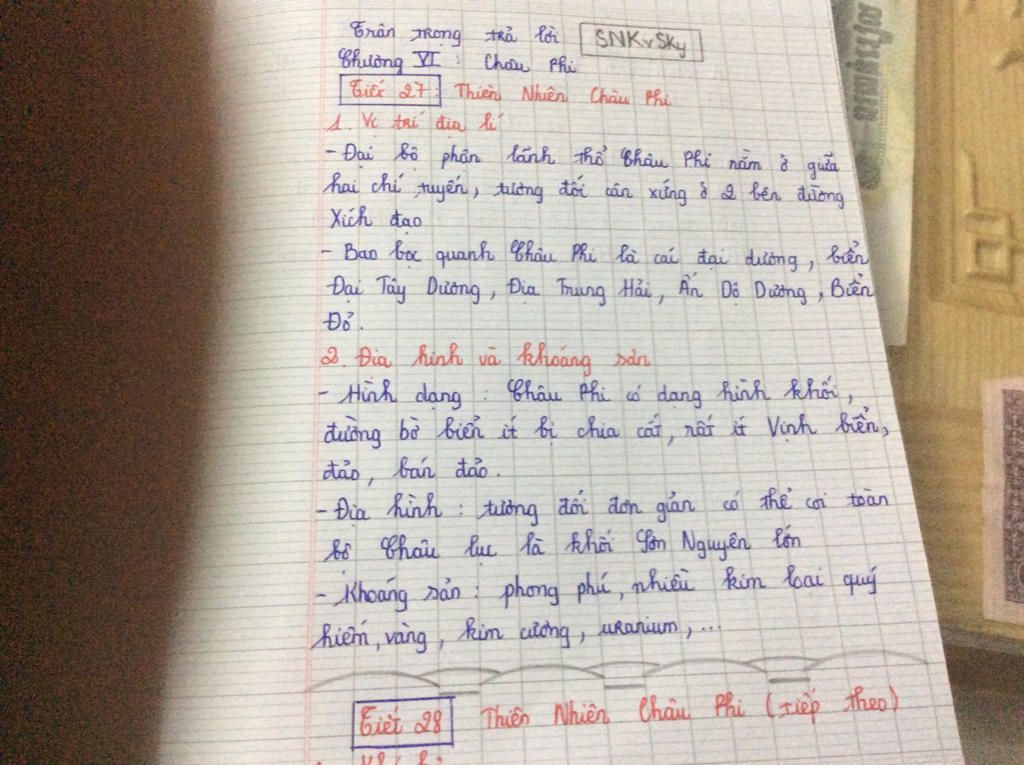 Trân trọng trả lời SNKvSKy
Chương VI : Châu Phi
Tiết 27: Thiên Nhiên Châu Phi
1. Vị trí địa lí
- Đại bộ phận lãnh thổ Châu Phi nằm ở giữa
hai chí tuyến, tương đối cân xứng ở 2 bên đường
Xích đạo
- Bao bọc quanh Châu Phi là các đại dương, biển
Đại Tây Dương, Địa Trung Hải, Ấn Độ Dương, Biển
Đỏ.
2. Địa hình và khoáng sản
- Hình dạng : Châu Phi có dạng hình khối,
đường bờ biển ít bị chia cắt, rất ít Vịnh biển,
đảo, bán đảo.
- Địa hình : tương đối đơn giản có thể coi toàn
bộ Châu lục là khối Sơn Nguyên lớn
- Khoáng sản : phong phú, nhiều kim loại quý
hiếm, vàng, kim cương, uranium, ...
Tiết 28 Thiên Nhiên Châu Phi (tiếp theo)